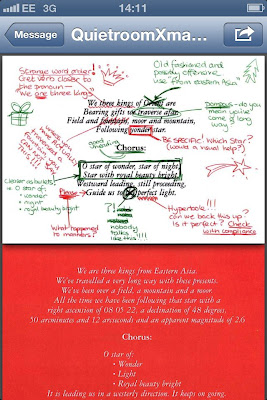 EE 3G 14:11
Message QuietroomXma...
Strange word order!
Get verb closer to
the pronoun –
We are three kings
Old fashioned and
possibly offensive
use
from eastern Asia
We three kings of Orient are
Bearing gifts we traverse afar.
Field and fountain, moor and mountain,
Following yonder star.
Dampus - do you
mean we've come
of long way
BE SPECIFIC! Which Star?
(would a visual help?)
Chorus:
O star of wonder, star of night,
Star with royal beauty bright,
Westward leading, still proceeding,
Guide us to perfect light.
Clearer as bullets
O star of:
• wonder
• night
• royal beauty bright
Please
What happened
to manners?
nobody
talks
like this!!!
Hyperbole!!!
can we back this up?
Is it perfect? Check
with compliance
We are three kings from Eastern Asia.
We've travelled a very long way with these presents.
We've been over a field, a mountain and a moor.
All the time we have been following that star with a
right ascension of 08 05 22, a declination of 48 degrees,
50 arcminutes and 12 arcseconds and an apparent magnitude of 2.6
Chorus:
O star of:
• Wonder
• Light
• Royal beauty bright
It is leading us in a westerly direction. It keeps on going.